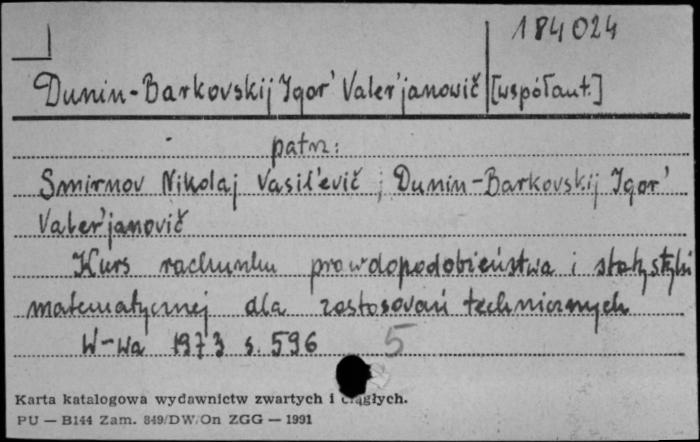 184024
Dunin-Barkovskij Igor' Valer'janovič [współaut.]
patrz:
Smirnov Nikolaj Vasil'evič ; Dunin-Barkovskij Igor'
Valer'janovič
Kurs rachunku prawdopodobieństwa i statystyki
matematycznej dla zastosowań technicznych
W-wa 1973 s. 596 5
Karta katalogowa wydawnictw zwartych i ciągłych.
PU — B144 Zam. 849/DW/On ZGG — 1991